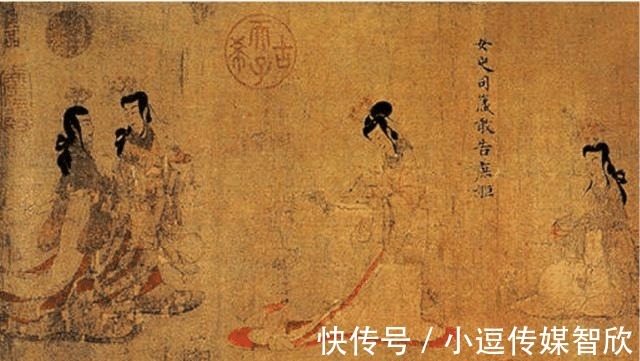 女史司箴敢告庶姬
古希天子
快传号 / 小逗传媒智欣